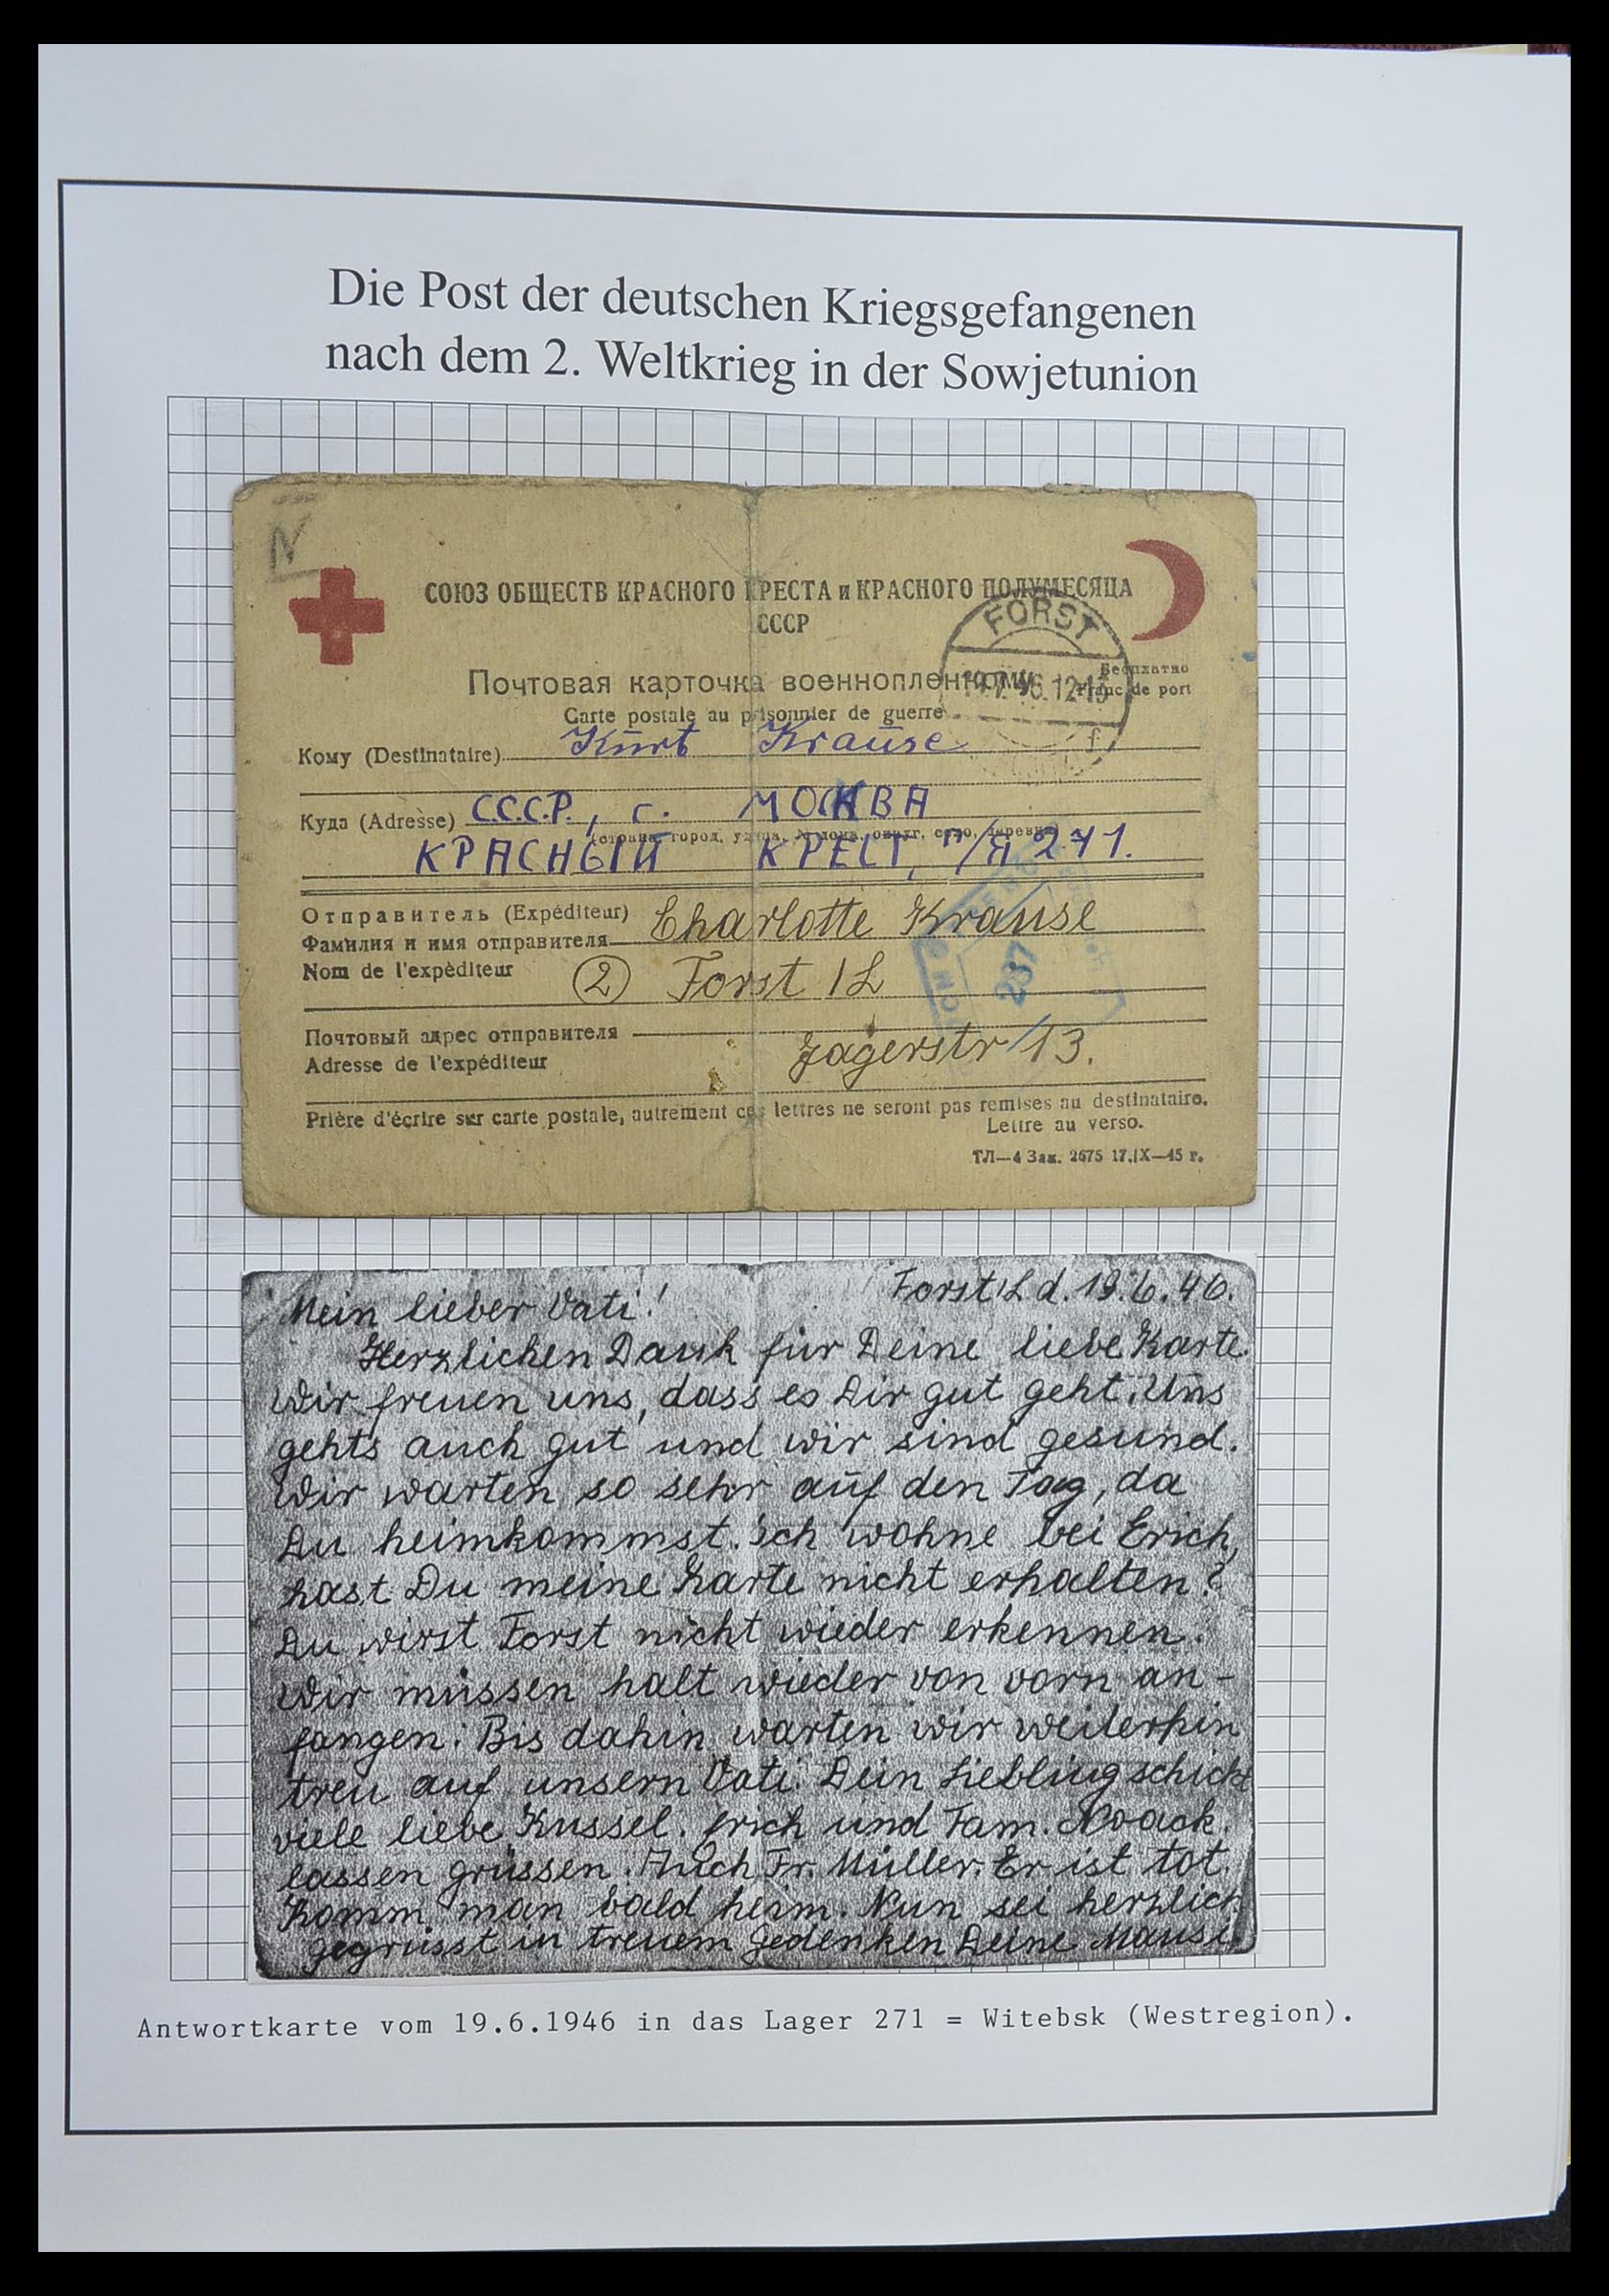 Die Post der deutschen Kriegsgefangenen
nach dem 2. Weltkrieg in der Sowjetunion
N
СОЮЗ ОБЩЕСТВ КРАСНОГО КРЕСТА и КРАСНОГО ПОЛУМЕСЯЦА
СССР
FORST
Почтовая карточка военнопленному
Бесплатно
Franc de port
46.12-13
f
Carte postale au prisonnier de guerre
Кому (Destinataire) Kurt Krause
Куда (Adresse) С.С.С.Р., г. МОСКВА
(страна, город, улица, № дома, округ, село, деревня)
КРАСНЫЙ КРЕСТ, п/я 271.
Отправитель (Expéditeur)
Фамилия и имя отправителя Charlotte Krause
Nom de l'expèditeur
② Forst /L
237
Почтовый адрес отправителя
Adresse de l'expéditeur
Jägerstr 13.
Prière d'écrire sur carte postale, autrement ces lettres ne seront pas remises au destinataire.
Lettre au verso.
ТЛ—4 Зак. 2675 17.IX—45 г.
Forst/L d. 19.6.46.
Mein lieber Vati!
Herzlichen Dank für Deine liebe Karte.
Wir freuen uns, dass es Dir gut geht. Uns
gehts auch gut und wir sind gesund.
Wir warten so sehr auf den Tag, da
Du heimkommst. Ich wohne bei Erich,
hast Du meine Karte nicht erhalten?
Du wirst Forst nicht wieder erkennen.
Wir müssen halt wieder von vorn an-
fangen. Bis dahin warten wir weiterhin
treu auf unsern Vati. Dein Liebling schickt
viele liebe Küssel. Erich und Fam. Noack.
lassen grüssen. Auch Fr. Müller. Er ist tot.
Komm man bald heim. Nun sei herzlich
gegrüsst in treuem Gedenken Deine Mausi.
Antwortkarte vom 19.6.1946 in das Lager 271 = Witebsk (Westregion).